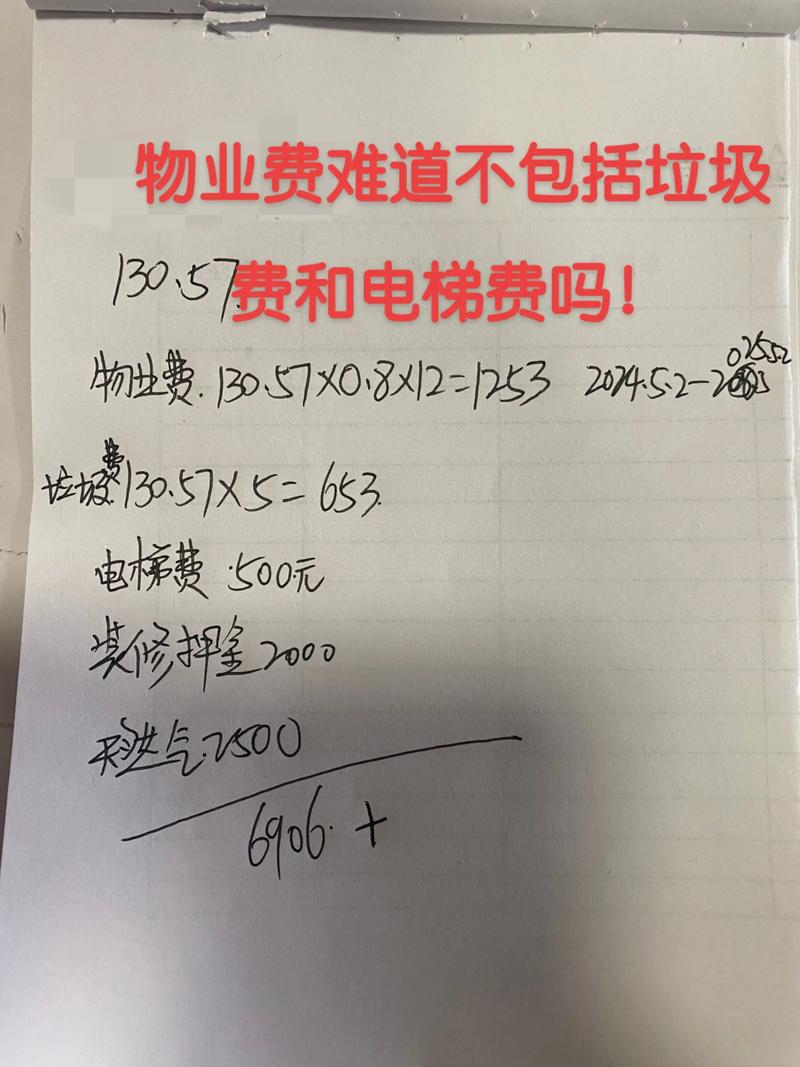 物业费难道不包括垃圾
费和电梯费吗！
130.57
物业费.130.57×0.8×12=1253 2024.5.2-2025.5.2
垃圾费130.57×5=653.
电梯费.500元
装修押金2000
天然气.2500
6906.+